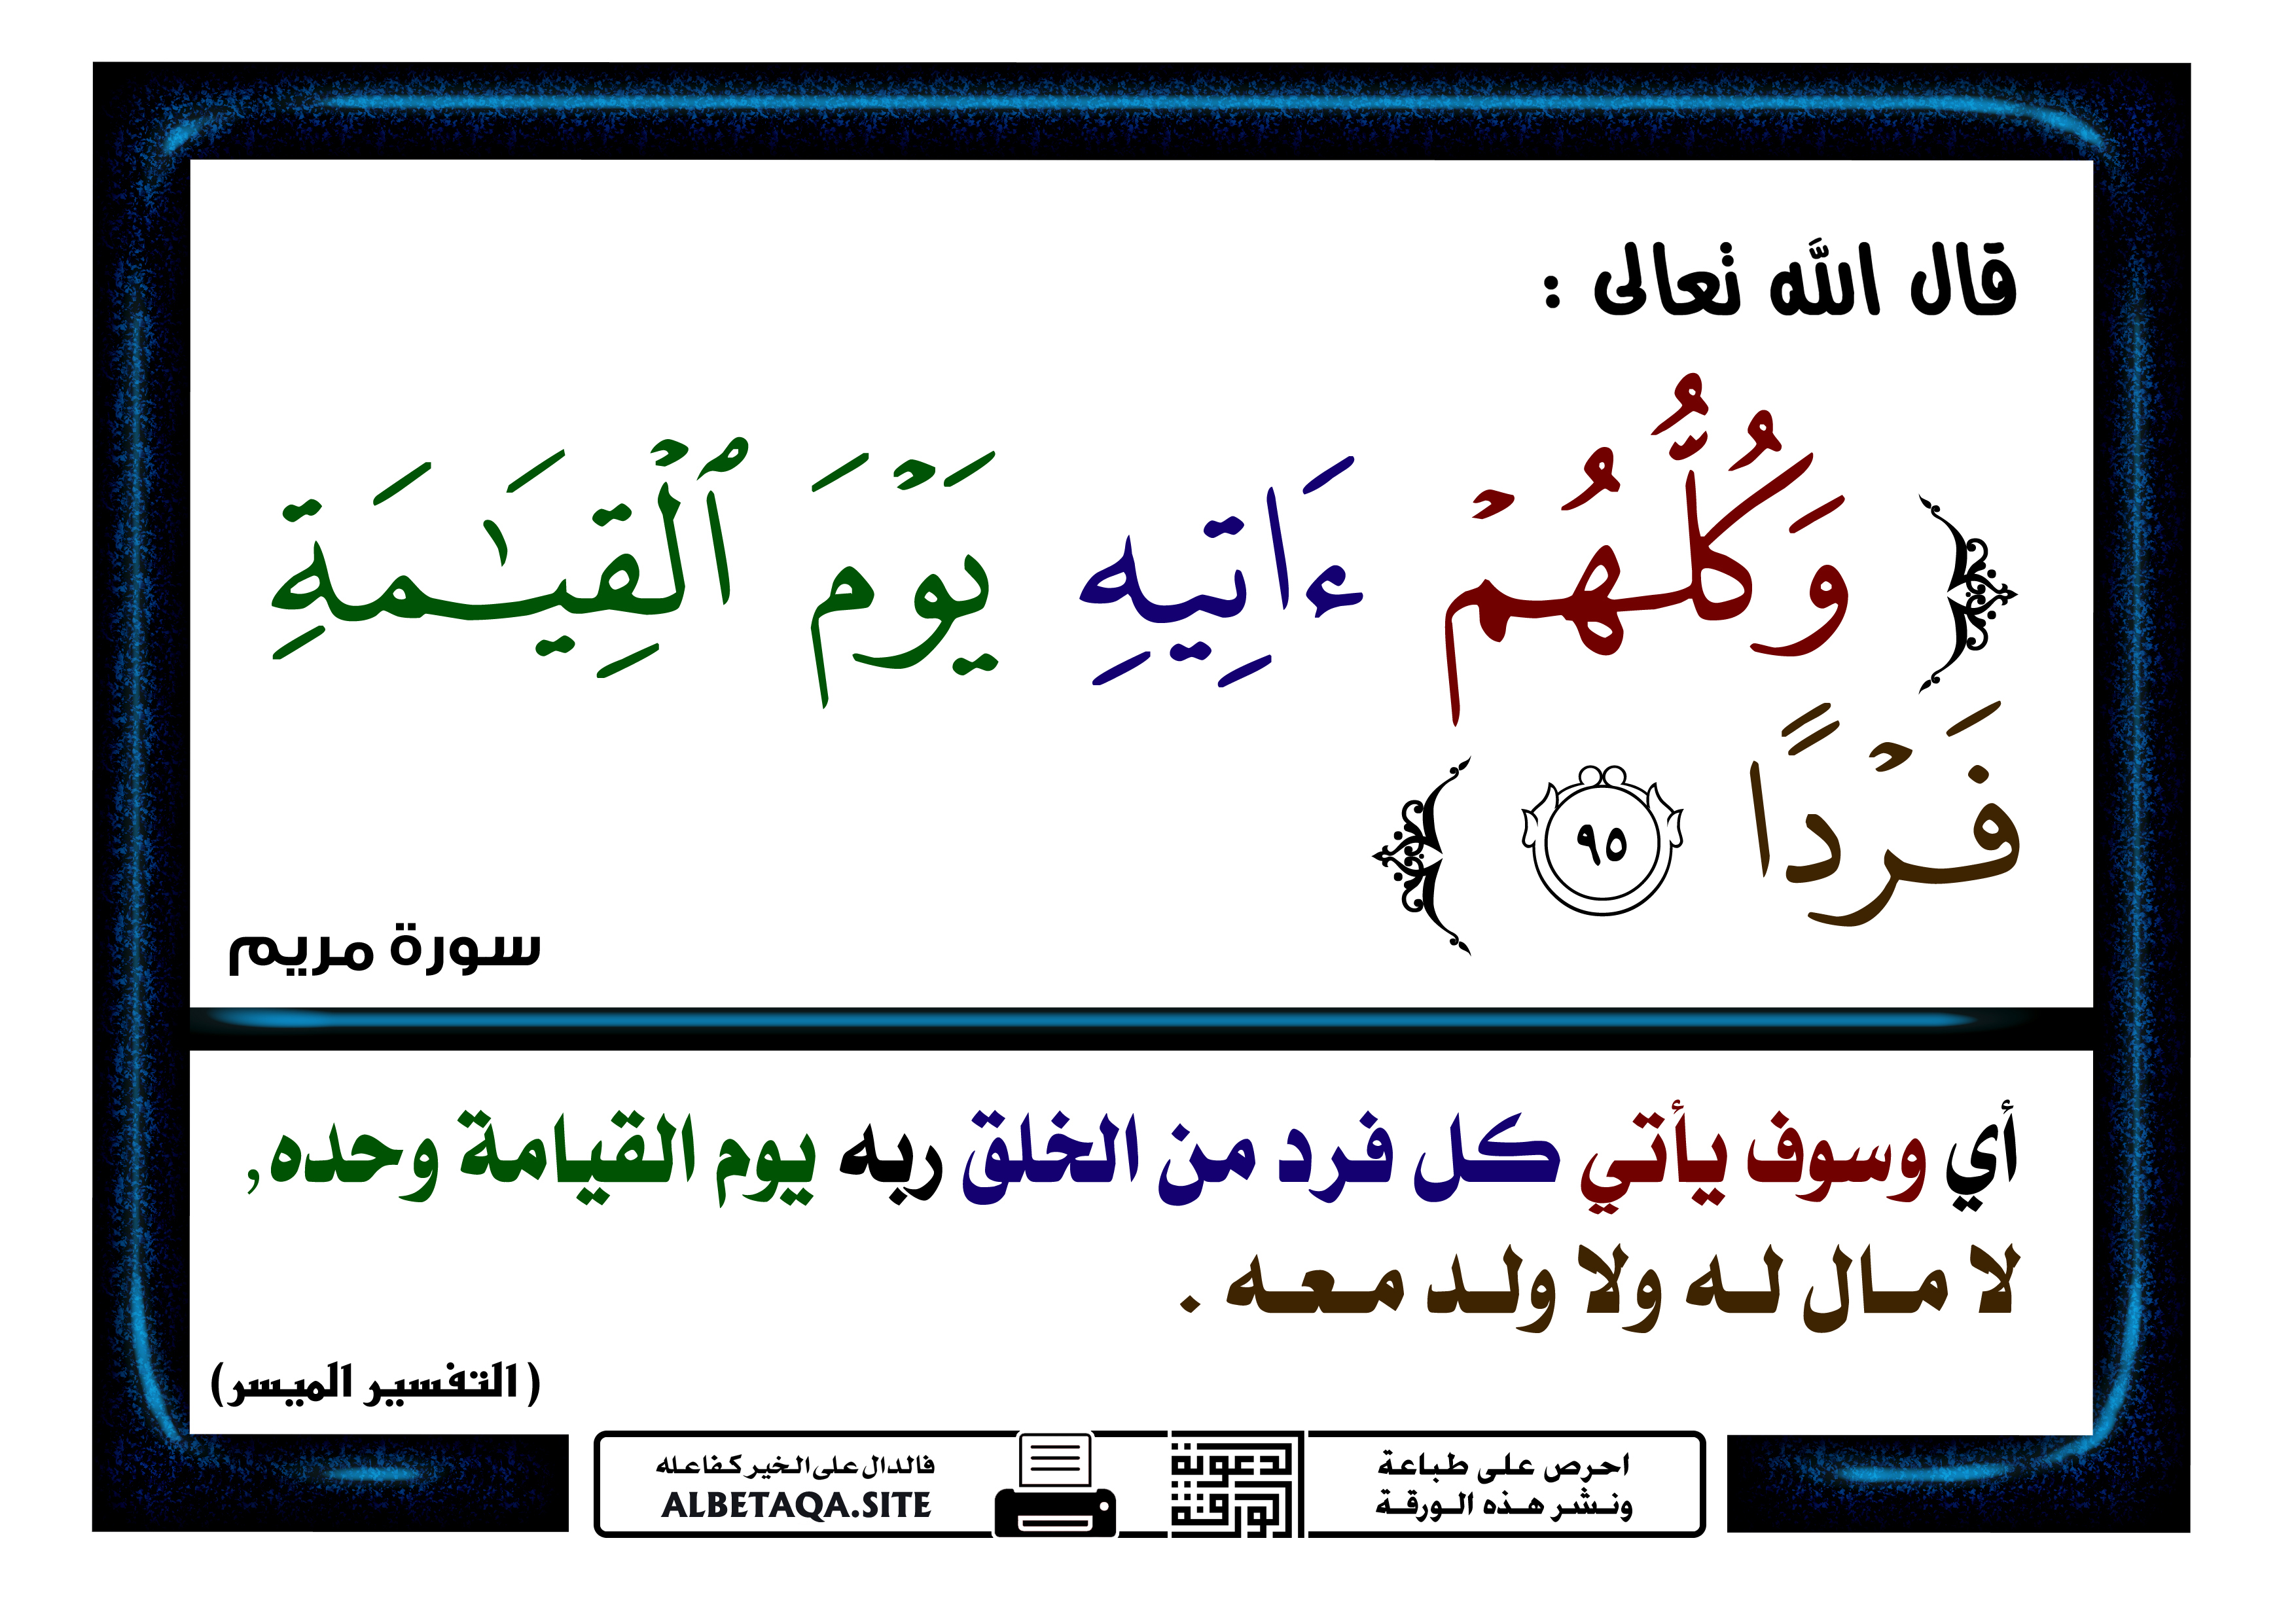 قال الله تعالى :
﴿ وَكُلُّهُمْ ءَاتِيهِ يَوْمَ ٱلْقِيَـٰمَةِ
فَرْدًا ٩٥ ﴾
سورة مريم
أي وسوف يأتي كل فرد من الخلق ربه يوم القيامة وحده,
لا مال له ولا ولد معه .
( التفسير الميسر)
احرص على طباعة
ونشر هذه الورقة
لدعوته
الورقة
فالدال على الخير كفاعله
ALBETAQA.SITE